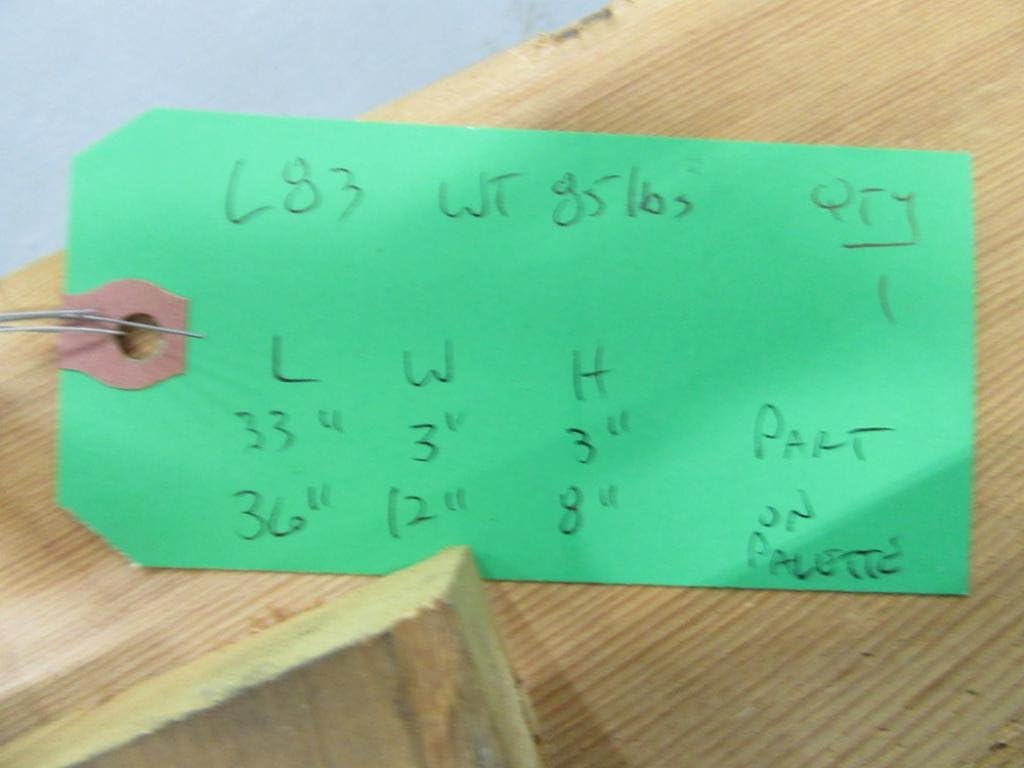 L83 WT 85 lbs QTY
1
L W H
33" 3" 3" PART
36" 12" 8" ON
PALETTE